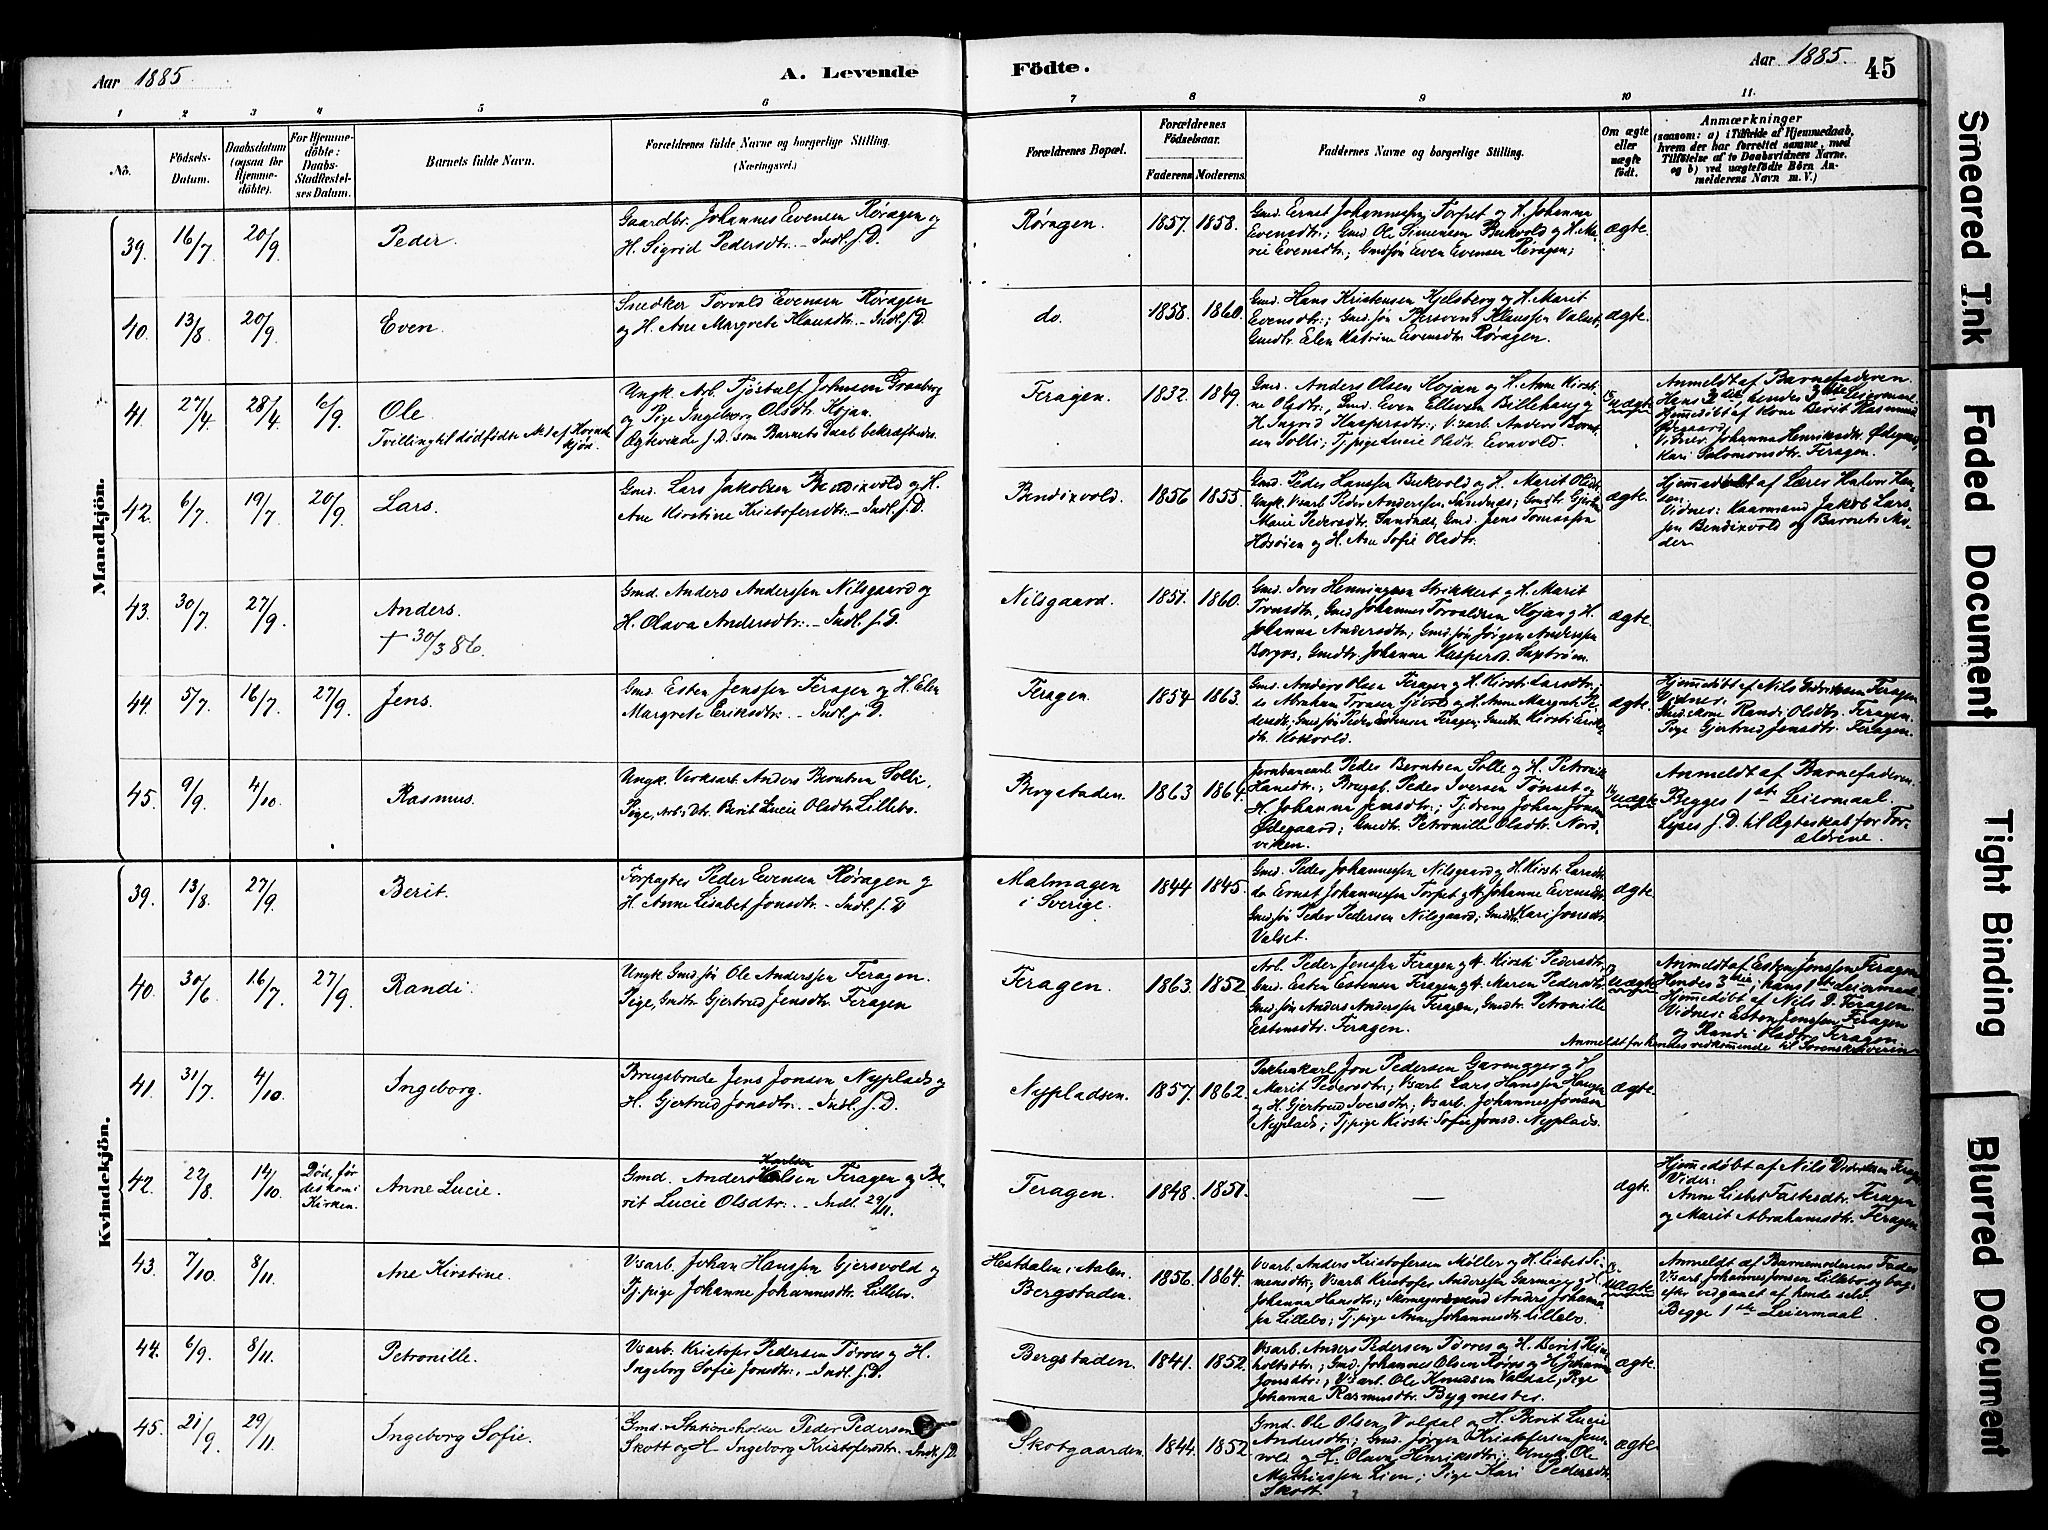 Aar 1885
A. Levende
Födte.
Aar 1885.
45
1 2 3 4 5 6 7 8 9 10 11.
No.
Födsels-
Datum.
Daabsdatum
(ogsaa for
Hjemme-
döbte).
For Hjemme-
döbte:
Daabs-
Stadfæstel-
ses Datum.
Barnets fulde Navn.
Forældrenes fulde Navne og borgerlige Stilling.
(Næringsvei.)
Forældrenes Bopæl.
Forældrenes
Födselsaar.
Faderens.
Moderens.
Faddernes Navne og borgerlige Stilling.
Om ægte
eller
uægte
født.
Anmærkninger
(saasom: a) i Tilfælde af Hjemmedaab,
hvem der har forrettet samme, med
Tilföielse af to Daabsvidners Navne,
og b) ved uægtefödte Börn An-
melderens Navn m. V.)
Mandkjön.
39. 16/7 20/9
Peder.
Gaardbr. Johannes Evensen Røragen og
H. Sigrid Pedersdtr. - Indl. f. D.
Røragen. 1857. 1858.
Gmd. Ernst Johannessen Torpet og H. Johanna
Evensdtr.; Gmd. Ole Simensen Bukvold og H. Ma-
rie Evensdtr.; Gmdsøn Even Evensen Røragen;
ægte.
40. 13/8 20/9
Even.
Snedker Torvald Evensen Røragen
og H. Ane Margrete Klausdtr. - Indl. f. D.
do. 1858. 1860.
Gmd. Hans Kristensen Kjelsberg og H. Marit
Evensdtr.; Gmd.søn Klaussen Valset,
Gmdtr. Elen Katrine Evensdtr. Røragen.
ægte.
41. 27/4 28/4 6/9
Ole
Tvilling til dødfødte No 1 af
kjøn.
Ungk. Arb. Tjøstulf Johnsen Graaberg
og Pige Ingeborg Olsdtr. Kojan.
Ægteviede f. D. som Barnets Daab bekræftedes.
Feragen. 1832. 1849.
Gmd. Anders Olsen Kojan og H. Anne Kirsti-
ne Olsdtr., Gmd. Even Ellevsen Billehaug og
H. Ingrid Kaspersdtr.; V.arb. Anders Bernt-
sen Solli; Tj. pige Lucie Olsdtr. Evavold.
uægte
Anmeldt af Barnefaderen
Hans 2det hendes 3die Leiermaal.
Hjemmedøbt af Kone Berit Rasmusd.
Ødegaard,
Vidner. Johanna Henriksdtr. Ødegaard,
Kari Salomonsdtr. Feragen.
42. 6/7 19/7 20/9
Lars.
Gmd. Lars Jakobsen Bendixvold og H.
Ane Kirstine Kristofersdtr. - Indl. f. D.
Bendixvold. 1856 1855.
Gmd. Peder Hanssen Bukvold og H. Marit Olsdtr.
Ungk. V.arb. Peder Anderssen Sundnes; Gmdtr.
Marie Pedersdtr. Sundnes, Gmd. Jens Tomassen
Hosøien og H. Ane Sofie Olsdtr.
ægte.
Hjemmedøbt af Lærer Halvor Han-
sen:
Vidner: Kaarmand Jakob Lars-
sen Bendixvold og Barnets Mo-
der
43. 30/7 27/9
Anders.
† 30/3 86.
Gmd. Anders Anderssen Nilsgaard og
H. Olava Andersdtr. - Indl. f. D.
Nilsgaard. 1851. 1860.
Gmd. Iver Henningsen Strikkert og H. Marit
Tronsdtr., Gmd Johannes Torvaldsen Kojan og H.
Johanna Andersdtr.; Gmd søn Jørgen Anderssen
Borgos, Gmdtr. Johanna Kaspersd. Saxtrøm.
ægte.
44. 5/7 16/7 27/9
Jens.
Gmd. Esten Jenssen Feragen og H. Elen
Margrete Eriksdtr. - Indl. f D.
Feragen. 1854 1863.
Gmd. Anders Olsen Feragen og H. Kirsti Larsdtr.;
do Abraham Tronsen Sjøvold og H. Anne Margrete Pe-
dersdtr., Gmd søn Peder Estensen Feragen; Gmdtr. Kirsti Eriks-
dtr. Kokvold.
ægte.
Hjemmedøbt af Nils Feragen
Vidner:
Gmd.kone Randi Olsdtr. Feragen.
Pige Gjertrud Jensdtr. Feragen.
45. 9/9 4/10
Rasmus.
Ungk. Verksarb. Anders Berntsen Solli,
Pige, Arb. Dtr. Berit Lucie Olsdtr. Lillebo.
Bergstaden. 1863 1864.
Jernbanearb. Peder Berntsen Solle og H. Petronille
Hansdtr.; Brugsb. Peder Iversen Tønset og
H. Johanna Jensdtr.; Tj. dreng Johan Jonsen
Ødegaard; Gmdtr. Petronille Olsdtr. Nord-
viken.
uægte
Anmeldt af Barnefaderen.
Begges 1ste Leiermaal.
Lyses f. D. til Ægteskab for For-
ældrene.
Kvindekjön.
39. 13/8 27/9
Berit.
Forpagter Peder Evensen Røragen og
H. Anne Lisabet Jonsdtr. - Indl. f. D
Malmagen
i Sverige.
1844 1845.
Gmd. Peder Johannessen Nilsgaard og H. Kirsti Larsdtr.
do Ernst Johannessen Torpet og H. Johanne Evensdtr.
Gmd søn Peder Pedersen Nilsgaard; Gmdtr. Kari Jonsdtr.
Valset.
ægte.
40. 30/6 16/7 27/9
Randi.
Ungk Gmd søn Ole Anderssen Feragen.
Pige, Gmdtr. Gjertrud Jensdtr. Feragen
Feragen. 1863. 1852.
Arb. Peder Jenssen Feragen og H. Kirsti Pedersdtr.
Gmd. Esten Estensen Feragen og H. Maren Pedersdtr.
Gmd søn Anders Anderssen Feragen, Gmdtr. Petronille
Estensdtr. Feragen.
uægte
Anmeldt af Esten Jenssen Feragen
Hendes 3die; hans 1ste Leiermaal
Hjemmedøbt af Nils D. Feragen
Vidner: Esten Jenssen Feragen
og Randi Olsdtr. Feragen
Anmeldt for hendes vedkommende til Sorenskriveren
41. 31/7 4/10
Ingeborg.
Brugsbonde Jens Jonsen Nyplads og
H. Gjertrud Jonsdtr. - Indl. f. D.
Nypladsen. 1857. 1862.
Jon Pedersen og H.
Marit Pedersdtr.; V.arb. Lars Hanssen Haugen
og H. Gjertrud Iversdtr.; V.arb. Johannes Jonsen
Nyplads; Tj. pige Kirsti Sofie Jonsd. Nyplads.
ægte.
42. 22/8 14/10
Død, før
det kom i
Kirken.
Anne Lucie.
Karlsen
Gmd. Anders Feragen og Be-
rit Lucie Olsdtr. - Indl. 29/11.
Feragen. 1848. 1851.
—
ægte.
Hjemmedøbt af Nils Feragen
Vidner:
Anne Lisbet Feragen
og Marit Abrahamsdtr. Feragen.
43. 7/10 8/11
Ane Kirstine.
V.arb. Johan Hanssen Gjersvold og
Tj. pige Johanne Johannesdtr. Lillebo.
Hestdalen i Aalen.
Bergstaden.
1856. 1864.
V.arb. Anders Kristofersen Möller og H. Lisbet Si-
mensdtr.; V.arb Kristofer Anderssen Garmag og H
Johanna Hansdtr.; Skomagersvend Anders Johannes-
sen Lillebo; Tj. pige Anne Johannesdtr. Lillebo.
uægte
Anmeldt af Barnemoderens Fader
V.arb. Johannes Jonsen Lillebo og bag-
efter vedgaaet af hende selv.
Begge 1ste Leiermaal
44. 6/9 8/11.
Petronille.
V.arb. Kristofer Pedersen Törres og H.
Ingeborg Sofie Jonsdtr. - Indl. f. D.
Bergstaden. 1841. 1852.
V.arb. Anders Pedersen Törres og H. Berit Rein-
holtsdtr.; Gmd. Johannes Olsen Røros og H. Johanna
Jonsdtr.; V.arb. Ole Knudsen Valdal; Pige
Johanna Rasmusdtr. Bygmester.
ægte.
45. 21/9. 29/11.
Ingeborg Sofie.
Gmd. & Stationsholder Peder Pedersen
Skott og H. Ingeborg Kristofersdtr. - Indl. f. D.
Skotgaarden. 1844. 1852.
Gmd. Ole Olsen Valdal og H. Berit Lucie
Andersdtr.; Gmd. Jørgen Kristofersen Jens-
vold og H. Olava Henriksdtr.; Ungk. Ole
Mathiassen Lien; Pige Kari Pedersdtr.
Skott.
ægte.
Smeared Ink
Faded Document
Tight Binding
Blurred Document